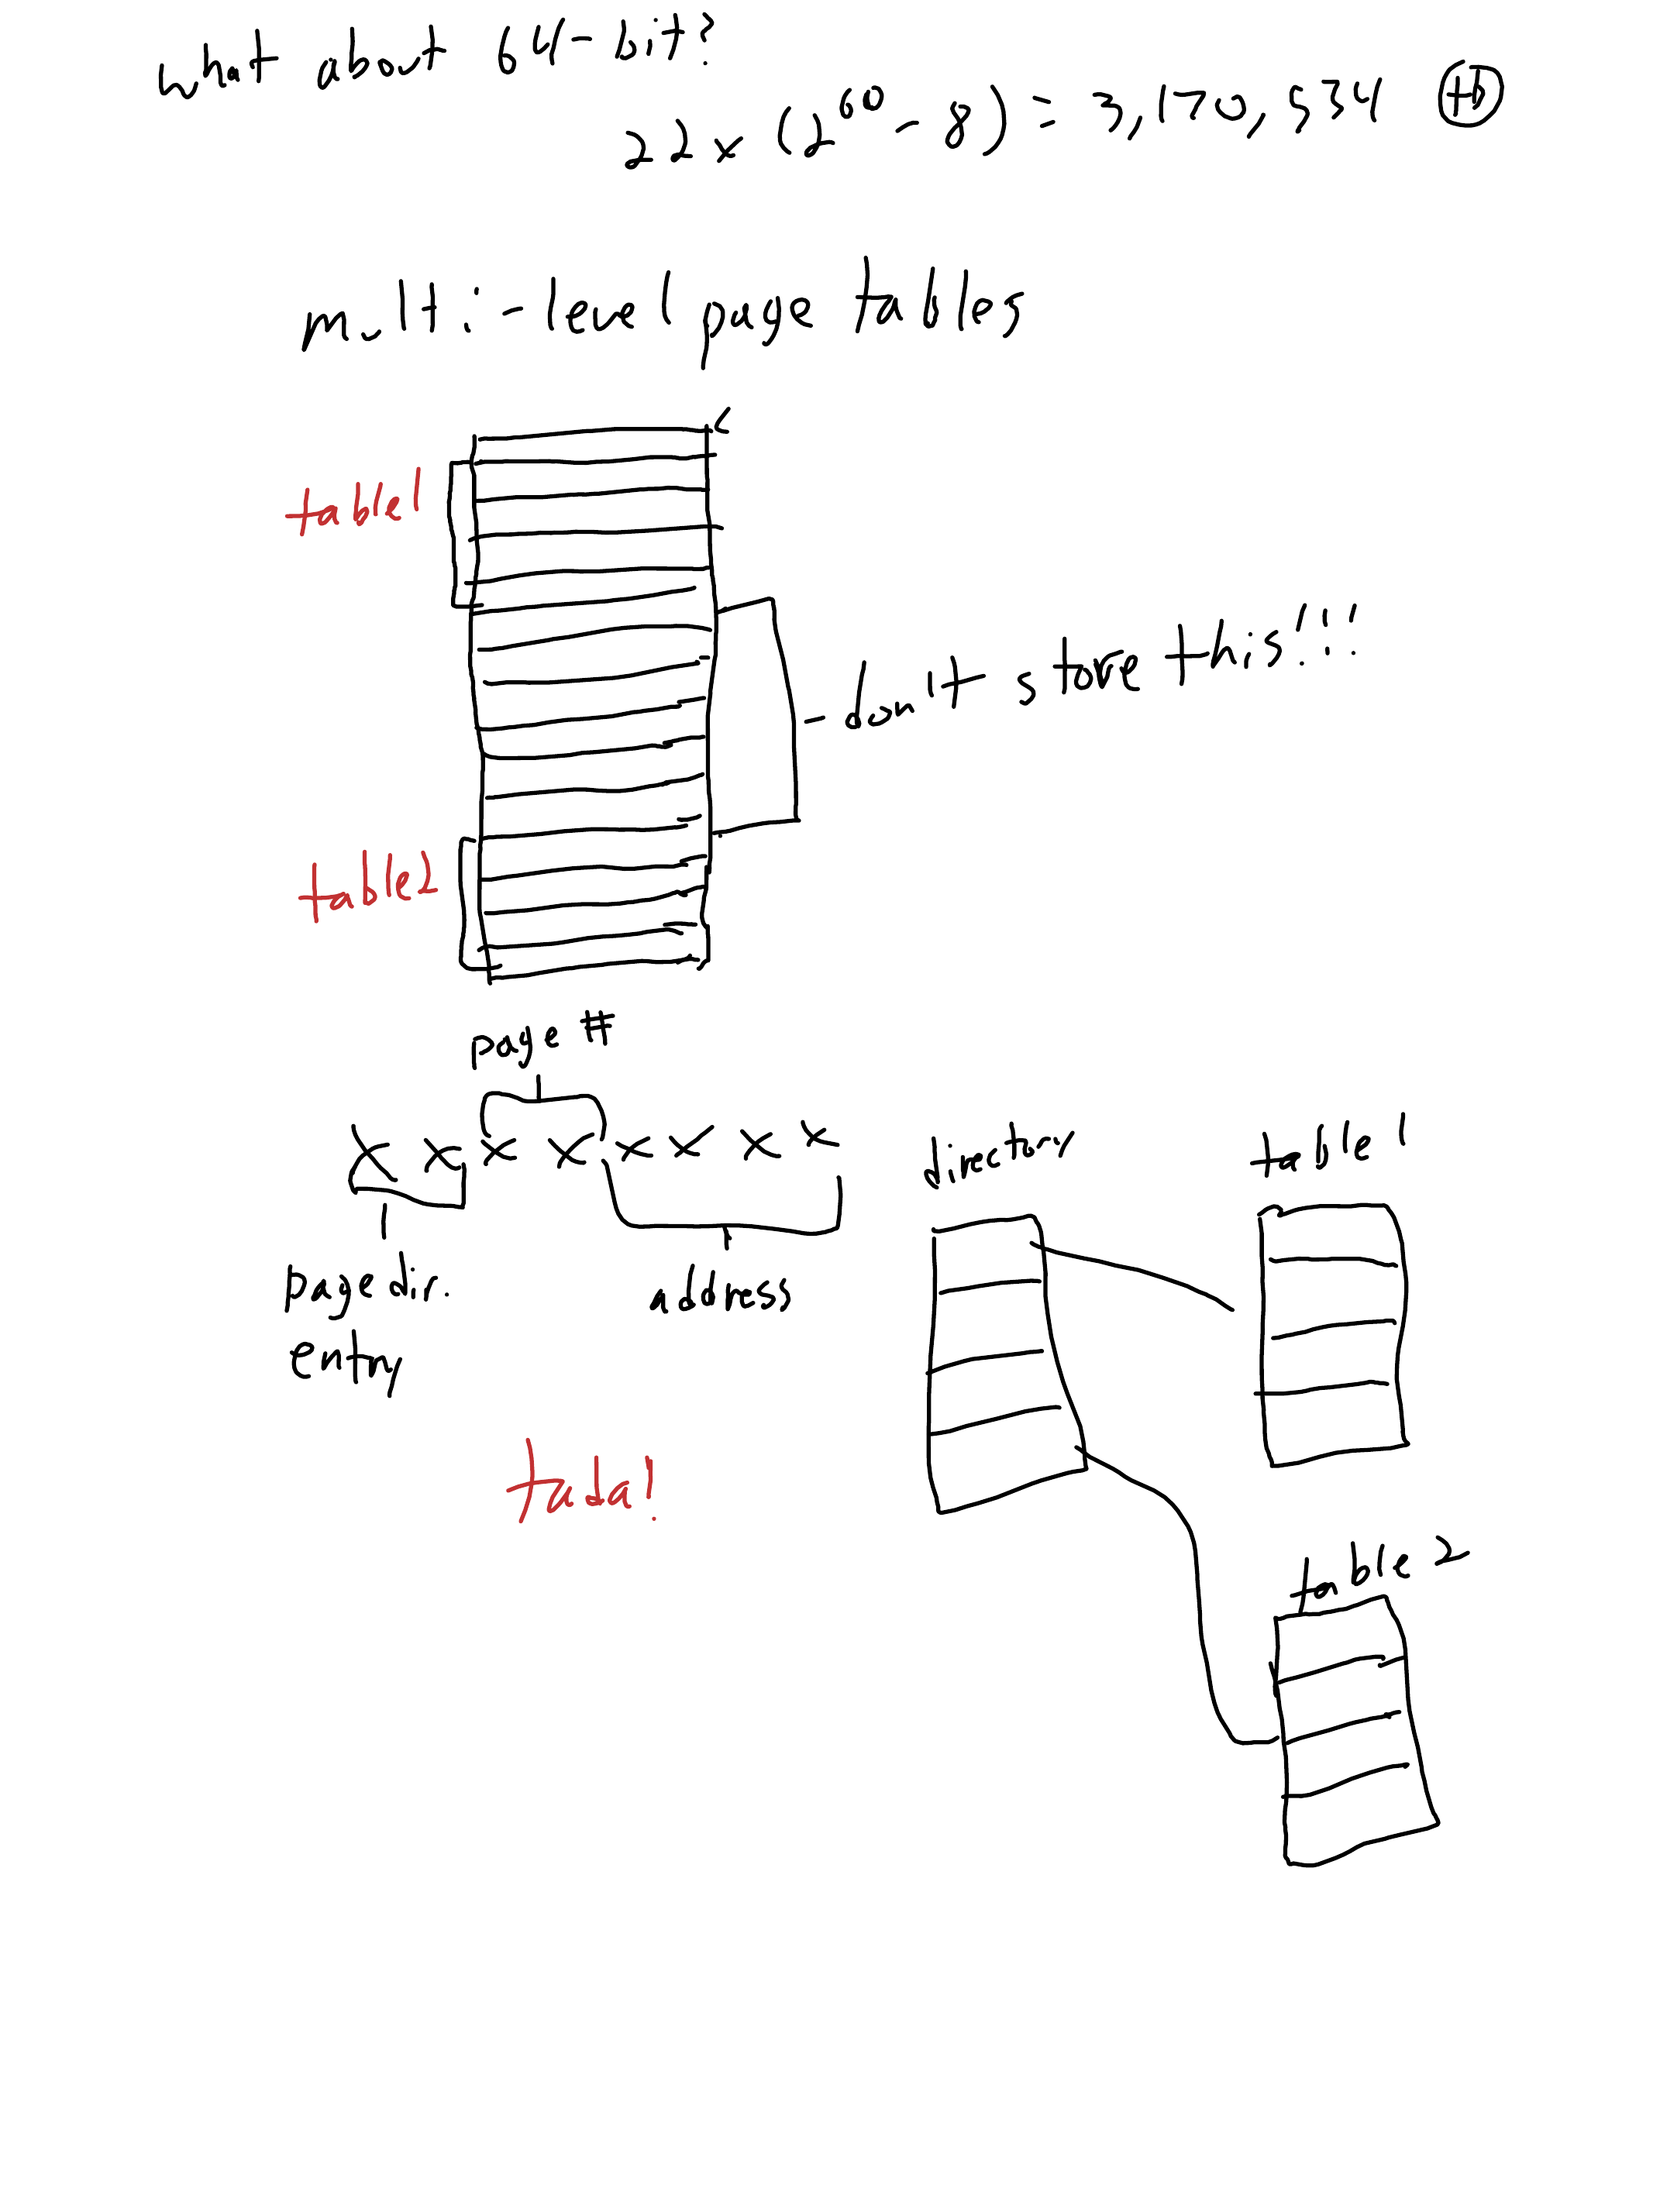 what about 64-bit?
22 x (2^60 - 8) = 3,170,534 tb
multi-level page tables
table1
don't store this!!!
table2
page #
x x x x x x x x
page dir.
entry
address
directory
table 1
tada!
table 2